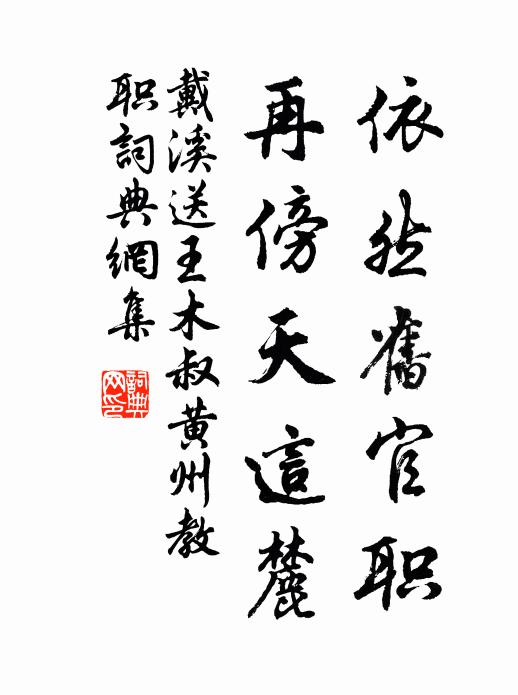 依然舊官职
再傍天這麓
戴溪送王木叔黄州教
职詞典網集
詞典网印